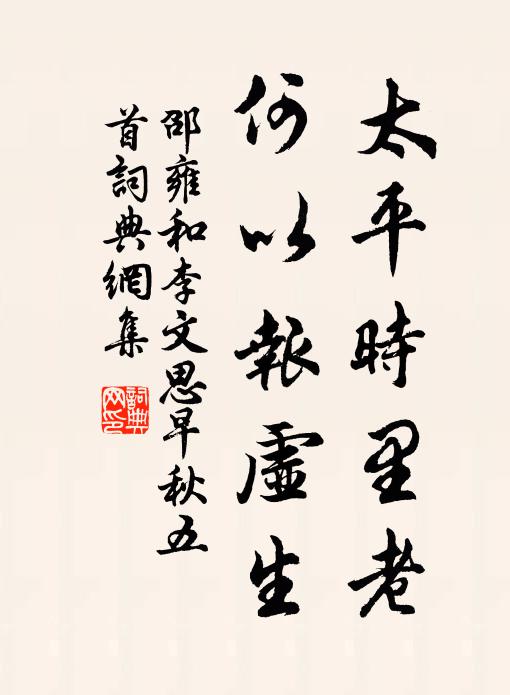 太平時里老
何以報虛生
邵雍和李文思早秋五
首詞典網集
詞典网印